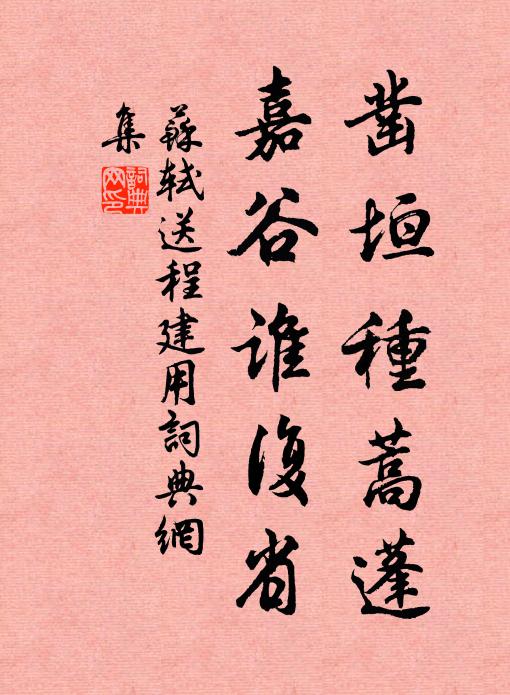 凿垣種蒿蓬
嘉谷谁復省
蘇轼送程建用詞典網
集
詞典网印